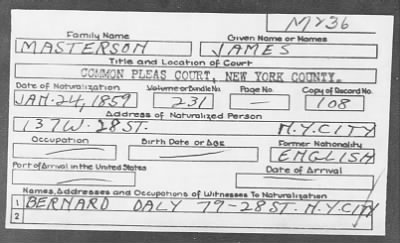 M236
Family Name Given Name or Names
MASTERSON JAMES
Title and Location of Court
COMMON PLEAS COURT, NEW YORK COUNTY.
Date of Naturalization Volume or Bundle No. Page No. Copy of Record No.
JAN. 24, 1859 231 — 108
Address of Naturalized Person
137 W. 28 ST. N.Y. CITY
Occupation Birth Date or Age Former Nationality
ENGLISH
Port of Arrival in the United States Date of Arrival
Names, Addresses and Occupations of Witnesses To Naturalization
1 BERNARD DALY 79-28 ST. N.Y. CITY
2